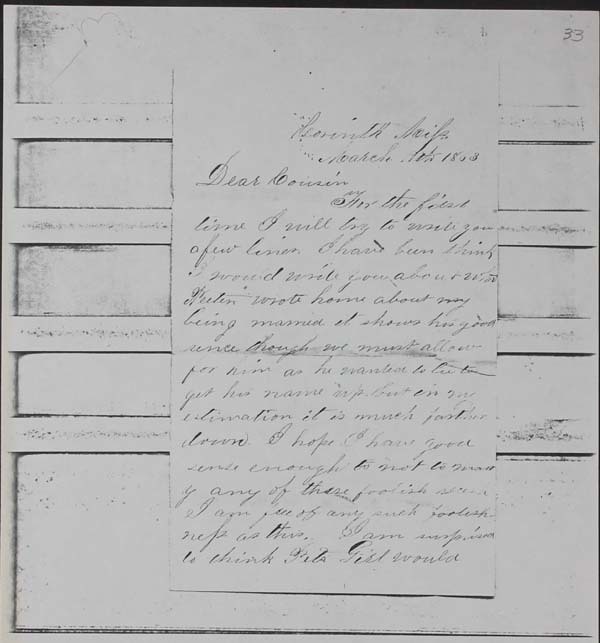 33
Corinth Miss
March 10th 1863
Dear Cousin
For the first
time I will try to write you
a few lines I have been think
I would write you about what
wrote home about my
being married it shows his good
sence though we must allow
for him as he wanted to lie to
get his name up but in my
estimation it is much farther
down I hope I have good
sense enough to not to marr
y any of these foolish
I am free of any such foolish
ness as this. I am surprised
to think Girl would